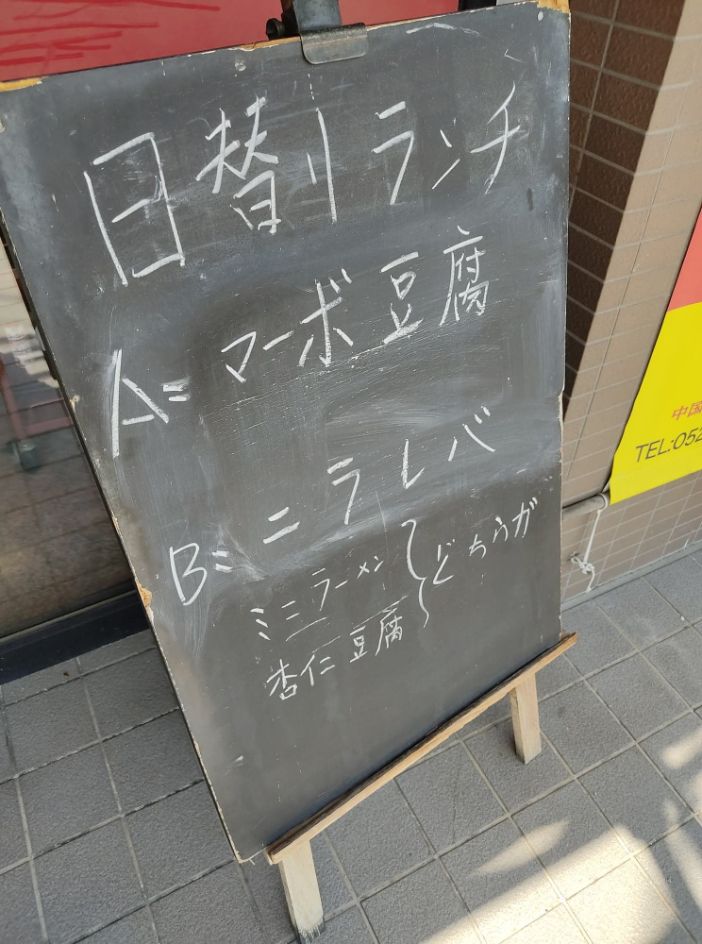 日替りランチ
A:マーボ豆腐
B:ニラレバ
ミニラーメン
杏仁豆腐
どちらか
中国
TEL:052